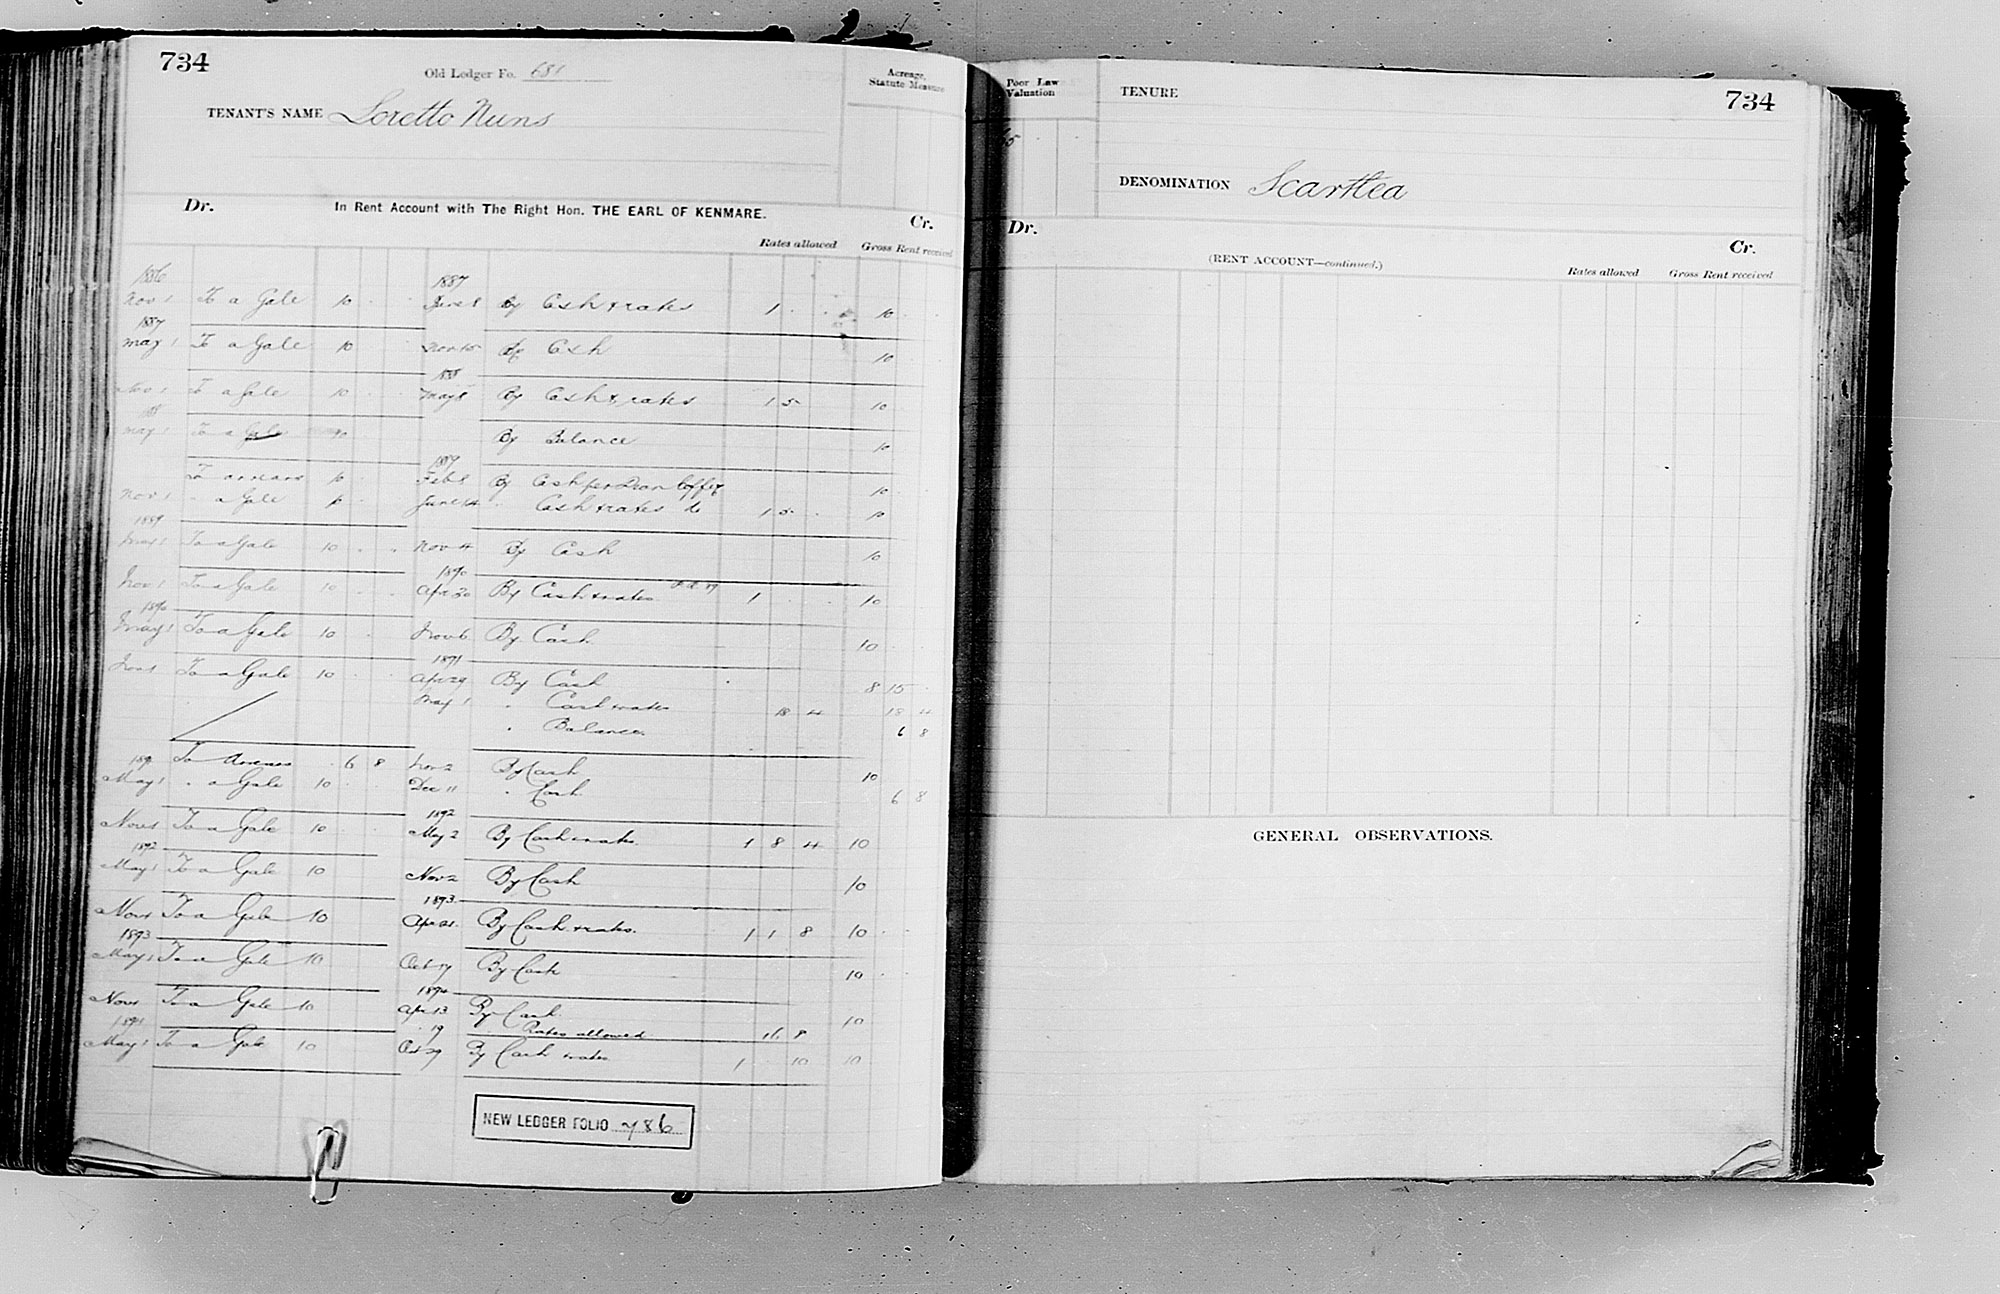 734
Old Ledger Fo. 681
Acreage, Statute Measure
TENANT'S NAME Loretto Nuns
Dr. In Rent Account with The Right Hon. THE EARL OF KENMARE. Cr.
Rates allowed Gross Rent received
1886 1887
Nov 1 To a Gale 10 June 8 By Cash & rates 1 10
1887
May 1 To a Gale 10 Nov 15 By Cash 10
1888
Nov 1 To a Gale 10 May 8 By Cash & rates 1 5 10
88
May 1 To a Gale 10 By Balance 10
1889
To arrears 10 Feb 8 By Cash per Dean Coffey 10
Nov 1 " a Gale 10 June 14 " Cash & rates 1 5 10
1889
May 1 To a Gale 10 Nov 4 By Cash 10
1890
Nov 1 To a Gale 10 Apr 30 By Cash & rates 1 10
1890
May 1 To a Gale 10 Nov 6 By Cash 10
1891
Nov 1 To a Gale 10 Apr 29 By Cash 8 15
May 1 " Cash & rates 18 4 18 4
" Balance 6 8
1891 To Arrears 6 8 Nov 2 By Cash 10
May 1 " a Gale 10 Dec 11 " Cash 6 8
1892
Nov 1 To a Gale 10 May 2 By Cash & rates 1 8 4 10
1892
May 1 To a Gale 10 Nov 2 By Cash 10
1893
Nov 1 To a Gale 10 Apr 21 By Cash & rates 1 1 8 10
1893
May 1 To a Gale 10 Oct 17 By Cash 10
1894
Nov 1 To a Gale 10 Apr 13 By Cash 10
1894 " 19 " Rates allowed 16 8
May 1 To a Gale 10 Oct 29 By Cash & rates 1 10 10
NEW LEDGER FOLIO 786
Poor Law Valuation
TENURE
734
DENOMINATION Scarttea
Dr. Cr.
(RENT ACCOUNT—continued.)
Rates allowed Gross Rent received
GENERAL OBSERVATIONS.